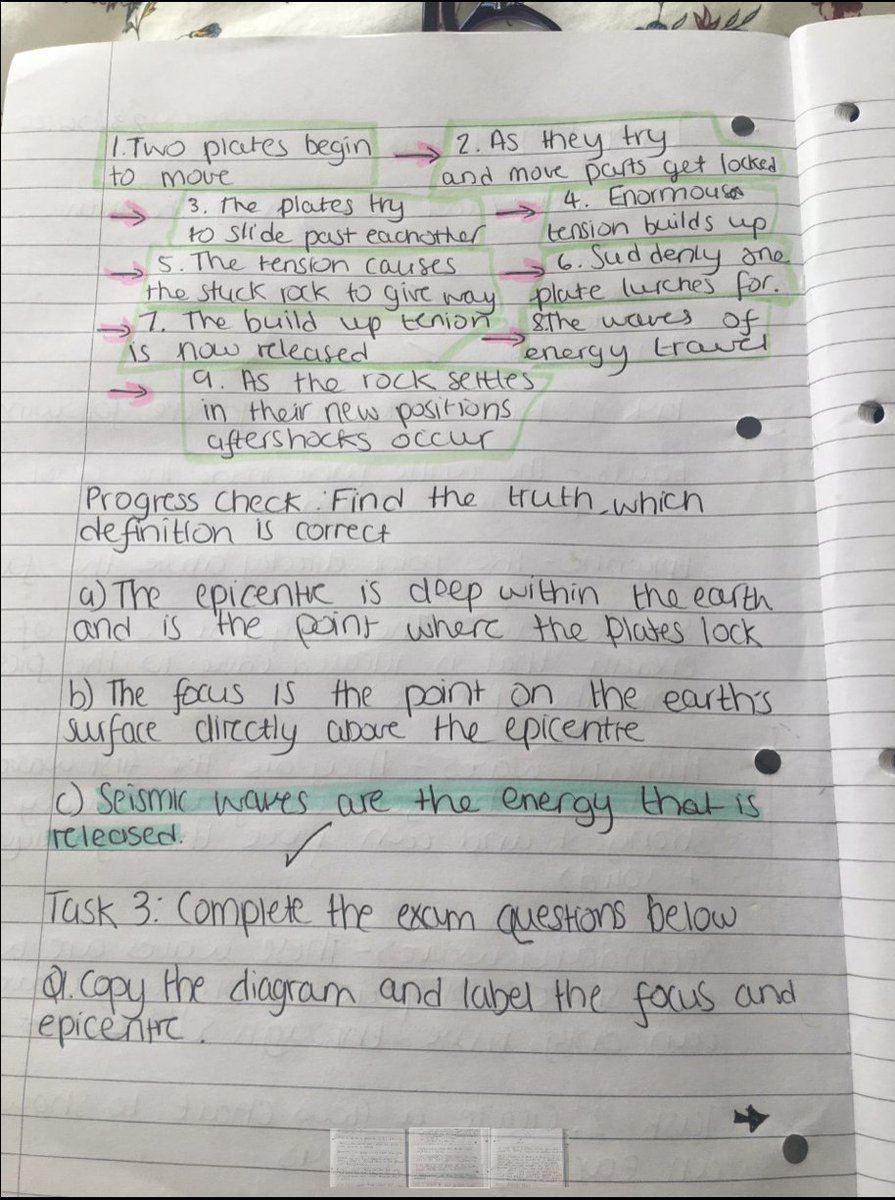 1. Two plates begin to move
→ 2. As they try and move parts get locked
→ 3. The plates try to slide past eachother
→ 4. Enormous tension builds up
→ 5. The tension causes the stuck rock to give way
→ 6. Suddenly one plate lurches for.
→ 7. The build up tenion is now released
→ 8. The waves of energy travel
→ 9. As the rock settles
in their new positions
aftershocks occur
Progress check : Find the truth, which
definition is correct
a) The epicentre is deep within the earth
and is the point where the plates lock
b) The focus is the point on the earth's
surface directly above the epicentre
c) Seismic waves are the energy that is
released.
Task 3: Complete the exam questions below
Q1. Copy the diagram and label the focus and
epicentre.